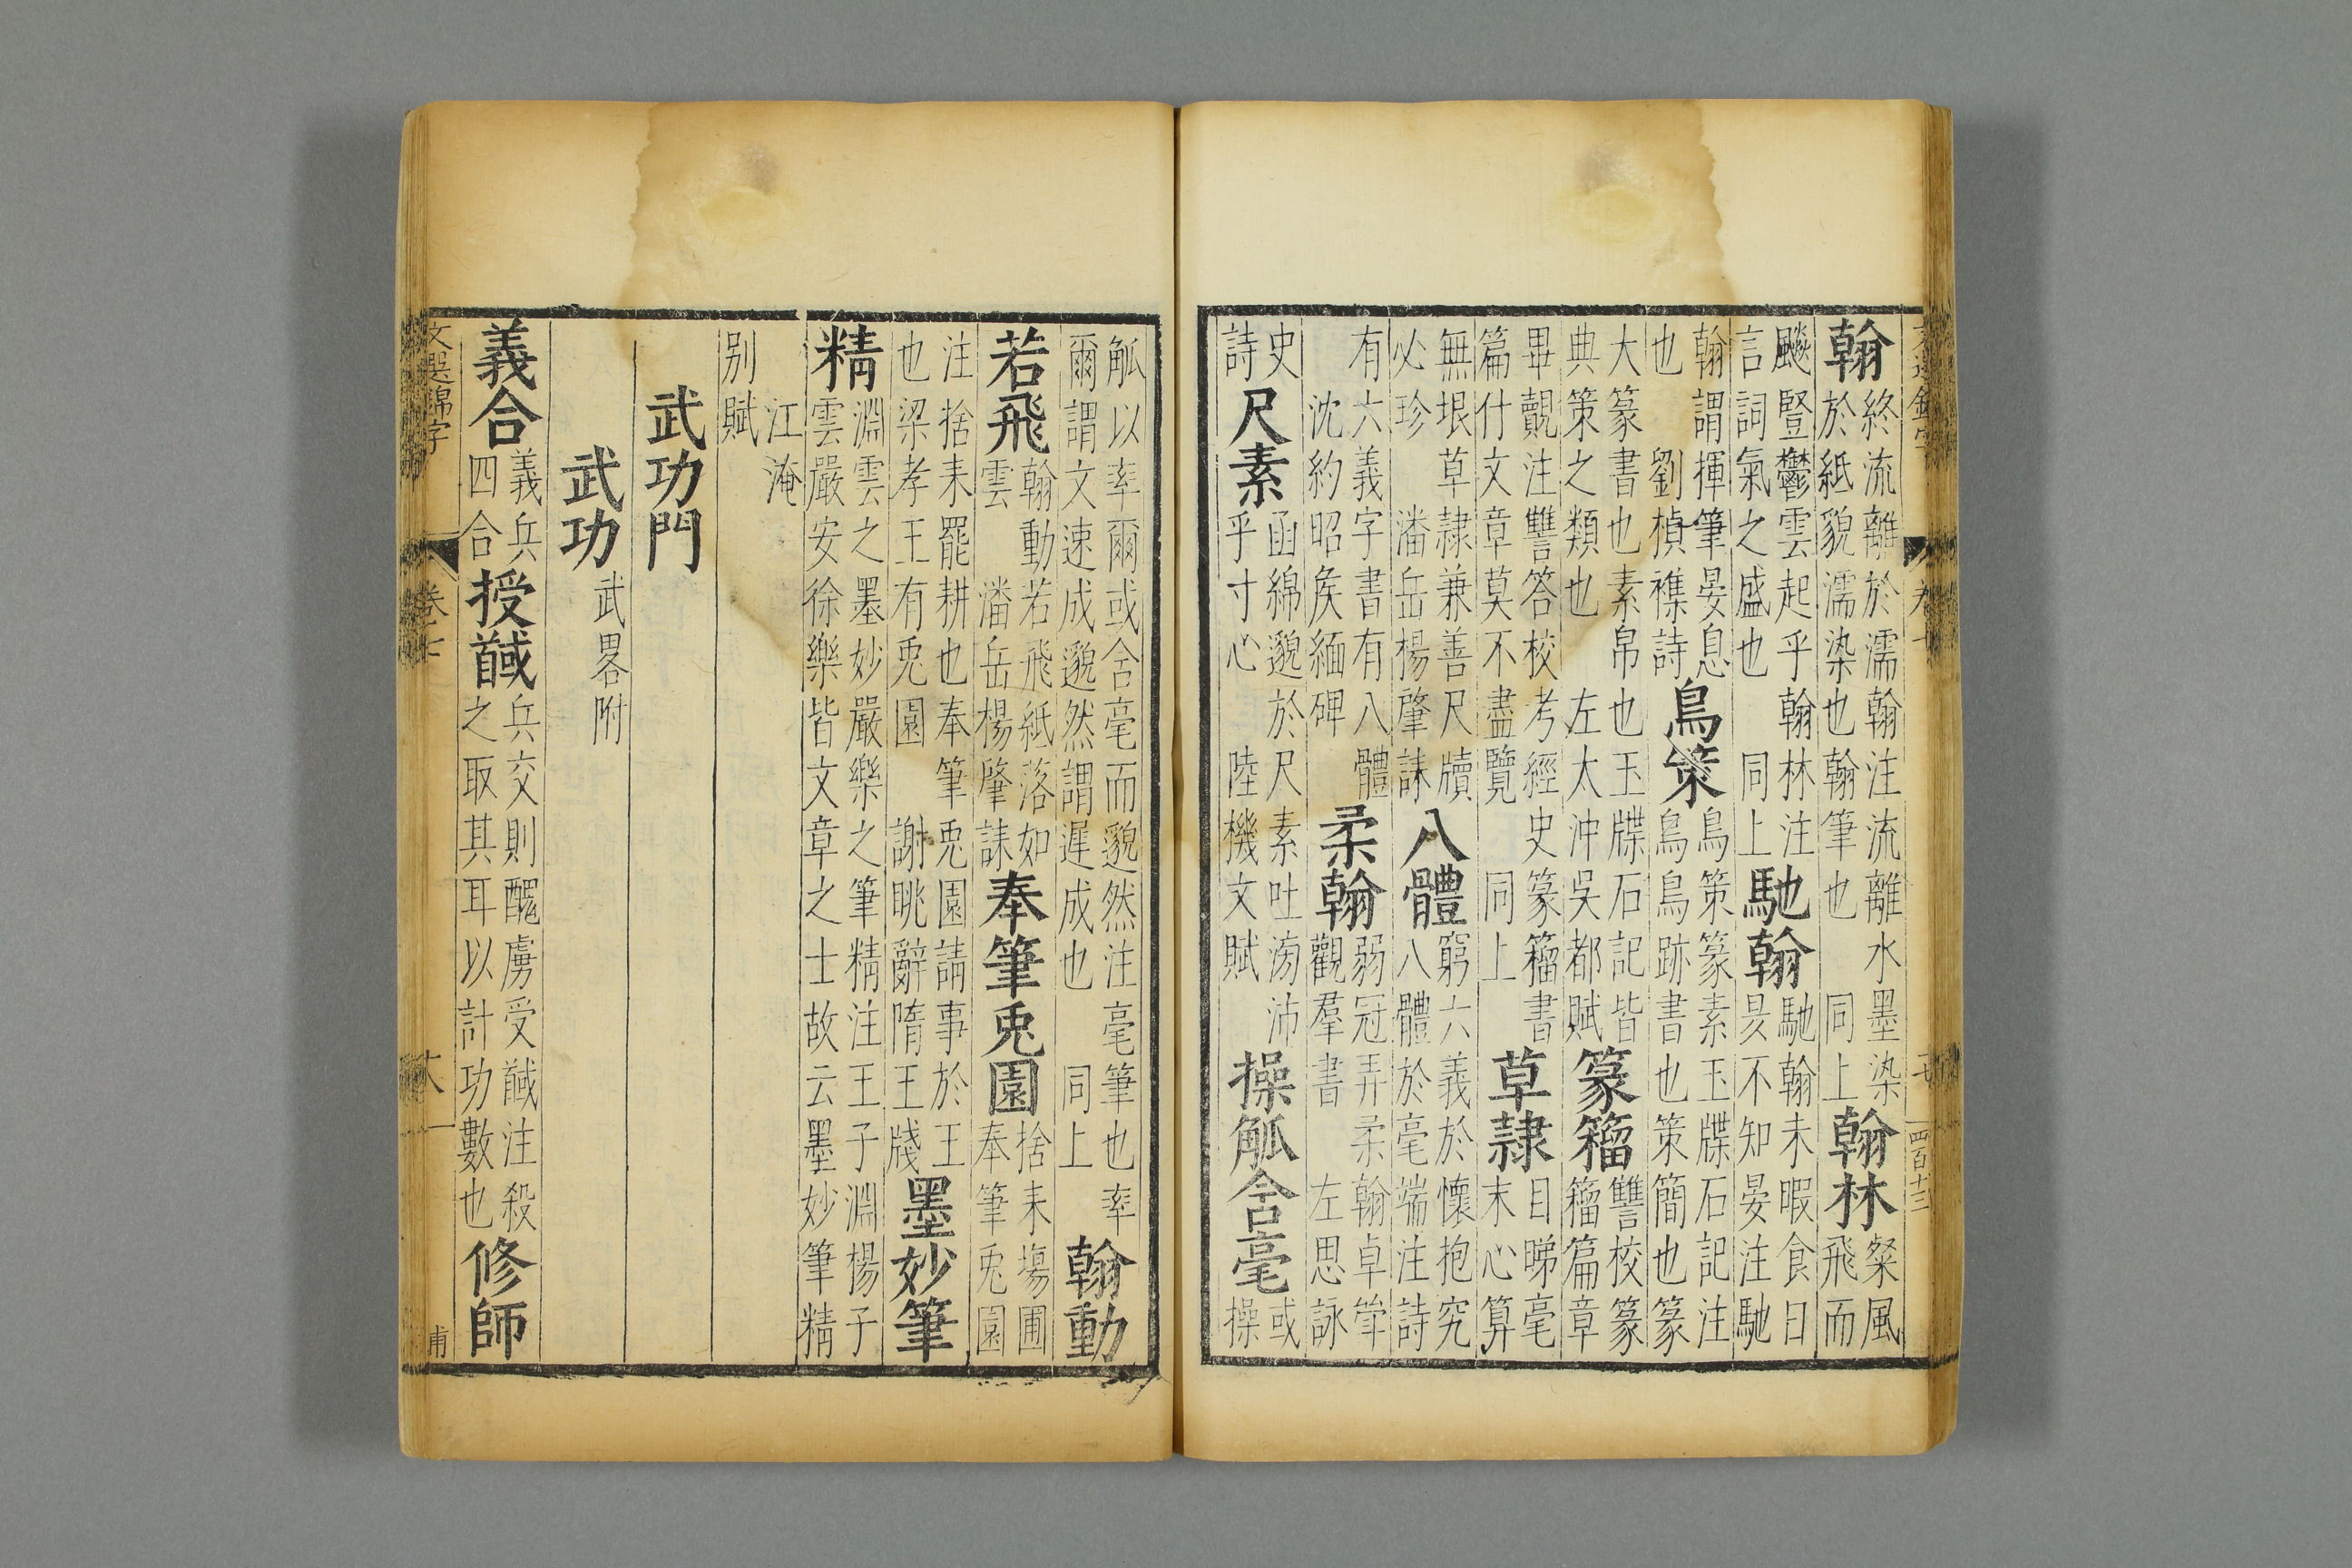 翰終流離於濡翰注流離水墨染於紙貌濡染也翰筆也 同上翰林粲風飛而
飈豎鬱雲起乎翰林注言詞氣之盛也 同上馳翰馳翰未暇食日昃不知晏注馳
翰謂揮筆晏息也 劉楨襍詩鳥策鳥策篆素玉牒石記注鳥鳥跡書也策簡也篆
大篆書也素帛也玉牒石記皆典策之類也 左太沖吳都賦篆籀讐校篆籀篇章
畢覿注讐答校考經史篆籀書篇什文章莫不盡覽 同上草隷目睇毫末心算
無垠草隷兼善尺牘必珍 潘岳楊肇誄八體窮六義於懷抱究八體於毫端注詩
有六義字書有八體 沈約昭矦緬碑柔翰弱冠弄柔翰卓犖觀羣書 左思詠
史詩尺素函綿邈於尺素吐滂沛乎寸心 陸機文賦操觚含毫或操
觚以率爾或含毫而邈然注毫筆也率爾謂文速成邈然謂遲成也 同上翰動
若飛翰動若飛紙落如雲 潘岳楊肇誄奉筆兎園捨耒塲圃奉筆兎園
注捨耒罷耕也奉筆兎園請事於王也梁孝王有兎園 謝眺辭隋王牋墨妙筆
精淵雲之墨妙嚴樂之筆精注王子淵楊子雲嚴安徐樂皆文章之士故云墨妙筆精
江淹別賦
武功門
武功 武畧附
義合義兵四合授馘兵交則醜虜受馘注殺之取其耳以計功數也修師
文選錦字 卷七 十八 甫